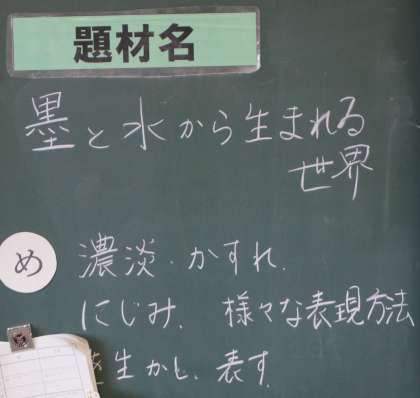 題材名
墨と水から生まれる
世界
め
濃淡・かすれ.
にじみ. 様々な表現方法
を生かし、表す